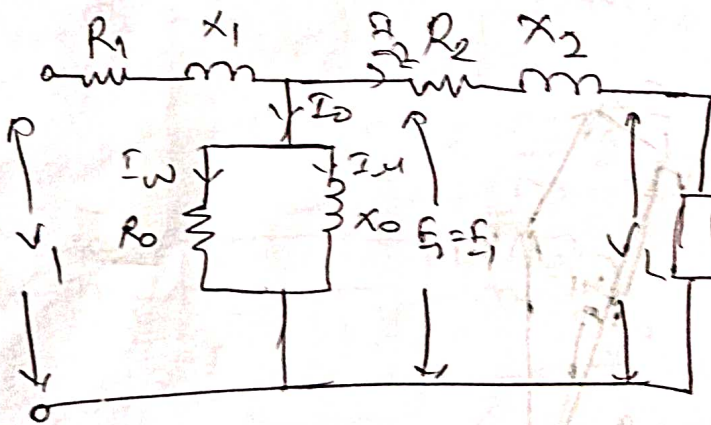 R1 X1 I2 R2 X2
I0
Iw Iμ
R0 X0 E1 = E1
V1 VL